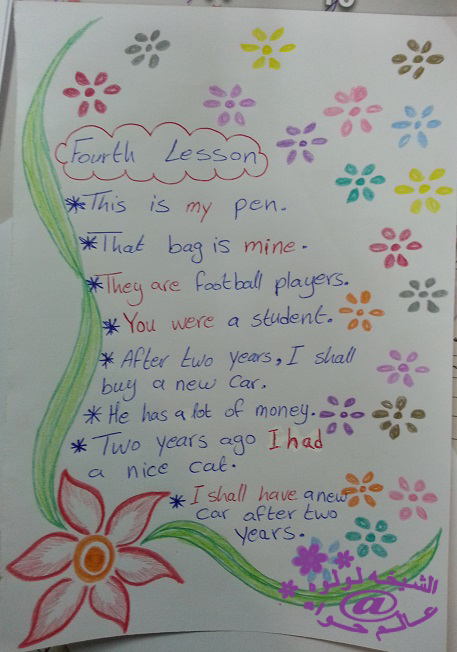 Fourth Lesson
*This is my pen.
*That bag is mine.
*They are football players.
*You were a student.
*After two years, I shall
buy a new car.
*He has a lot of money.
*Two years ago I had
a nice cat.
*I shall have a new
car after two
years.
الشيخه لولوه
@
عالم حواء